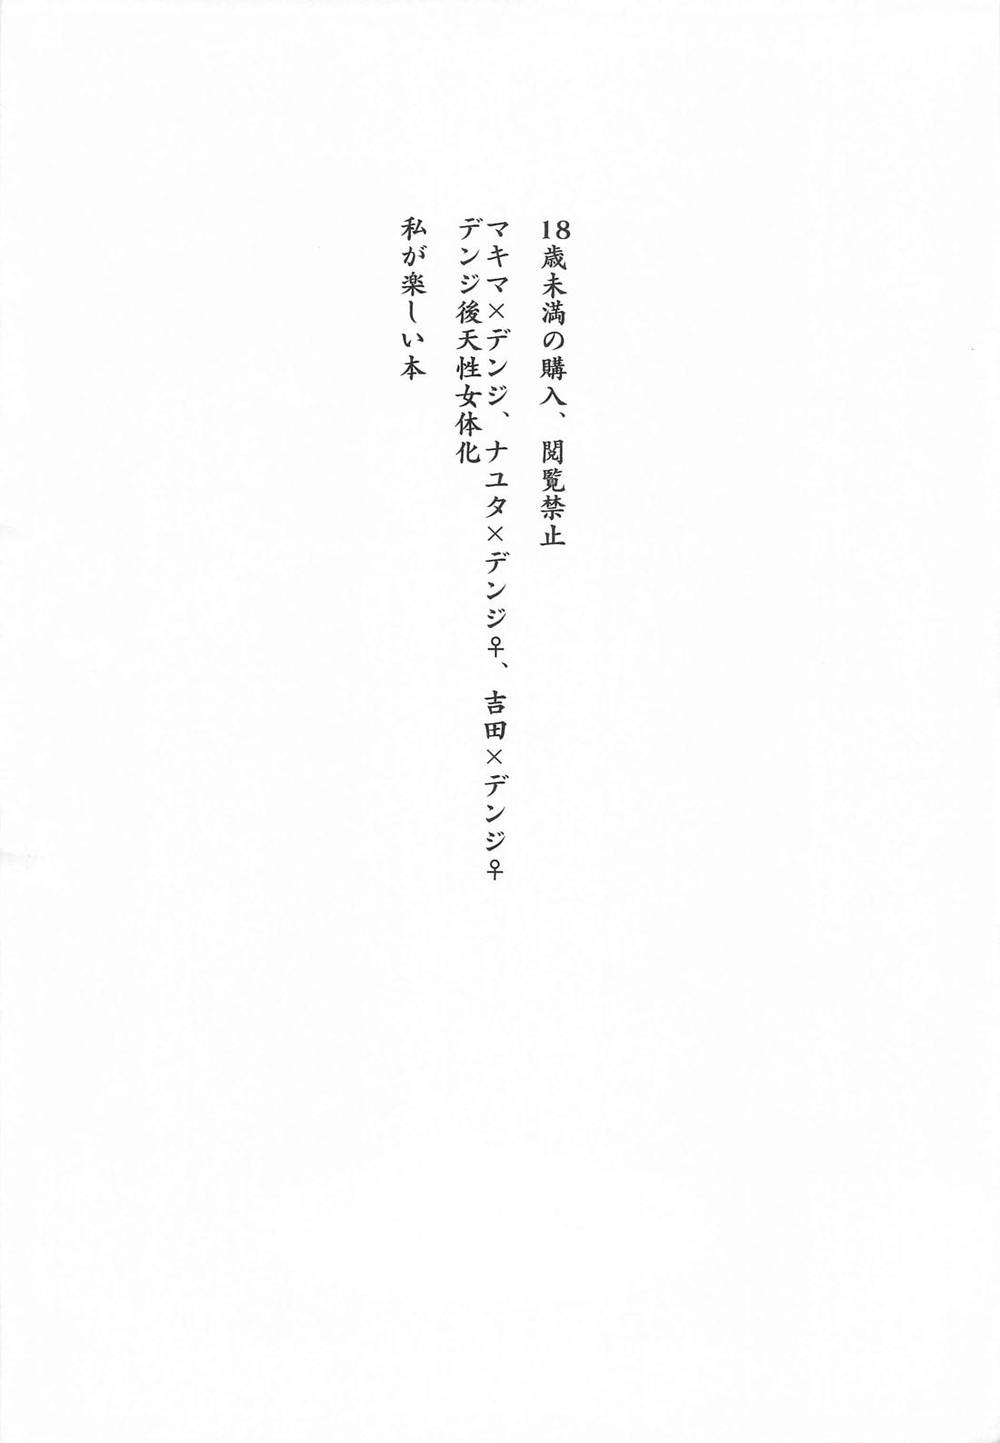 18歳未満の購入、閲覧禁止
マキマ×デンジ、ナユタ×デンジ♀、吉田×デンジ♀
デンジ後天性女体化
私が楽しい本